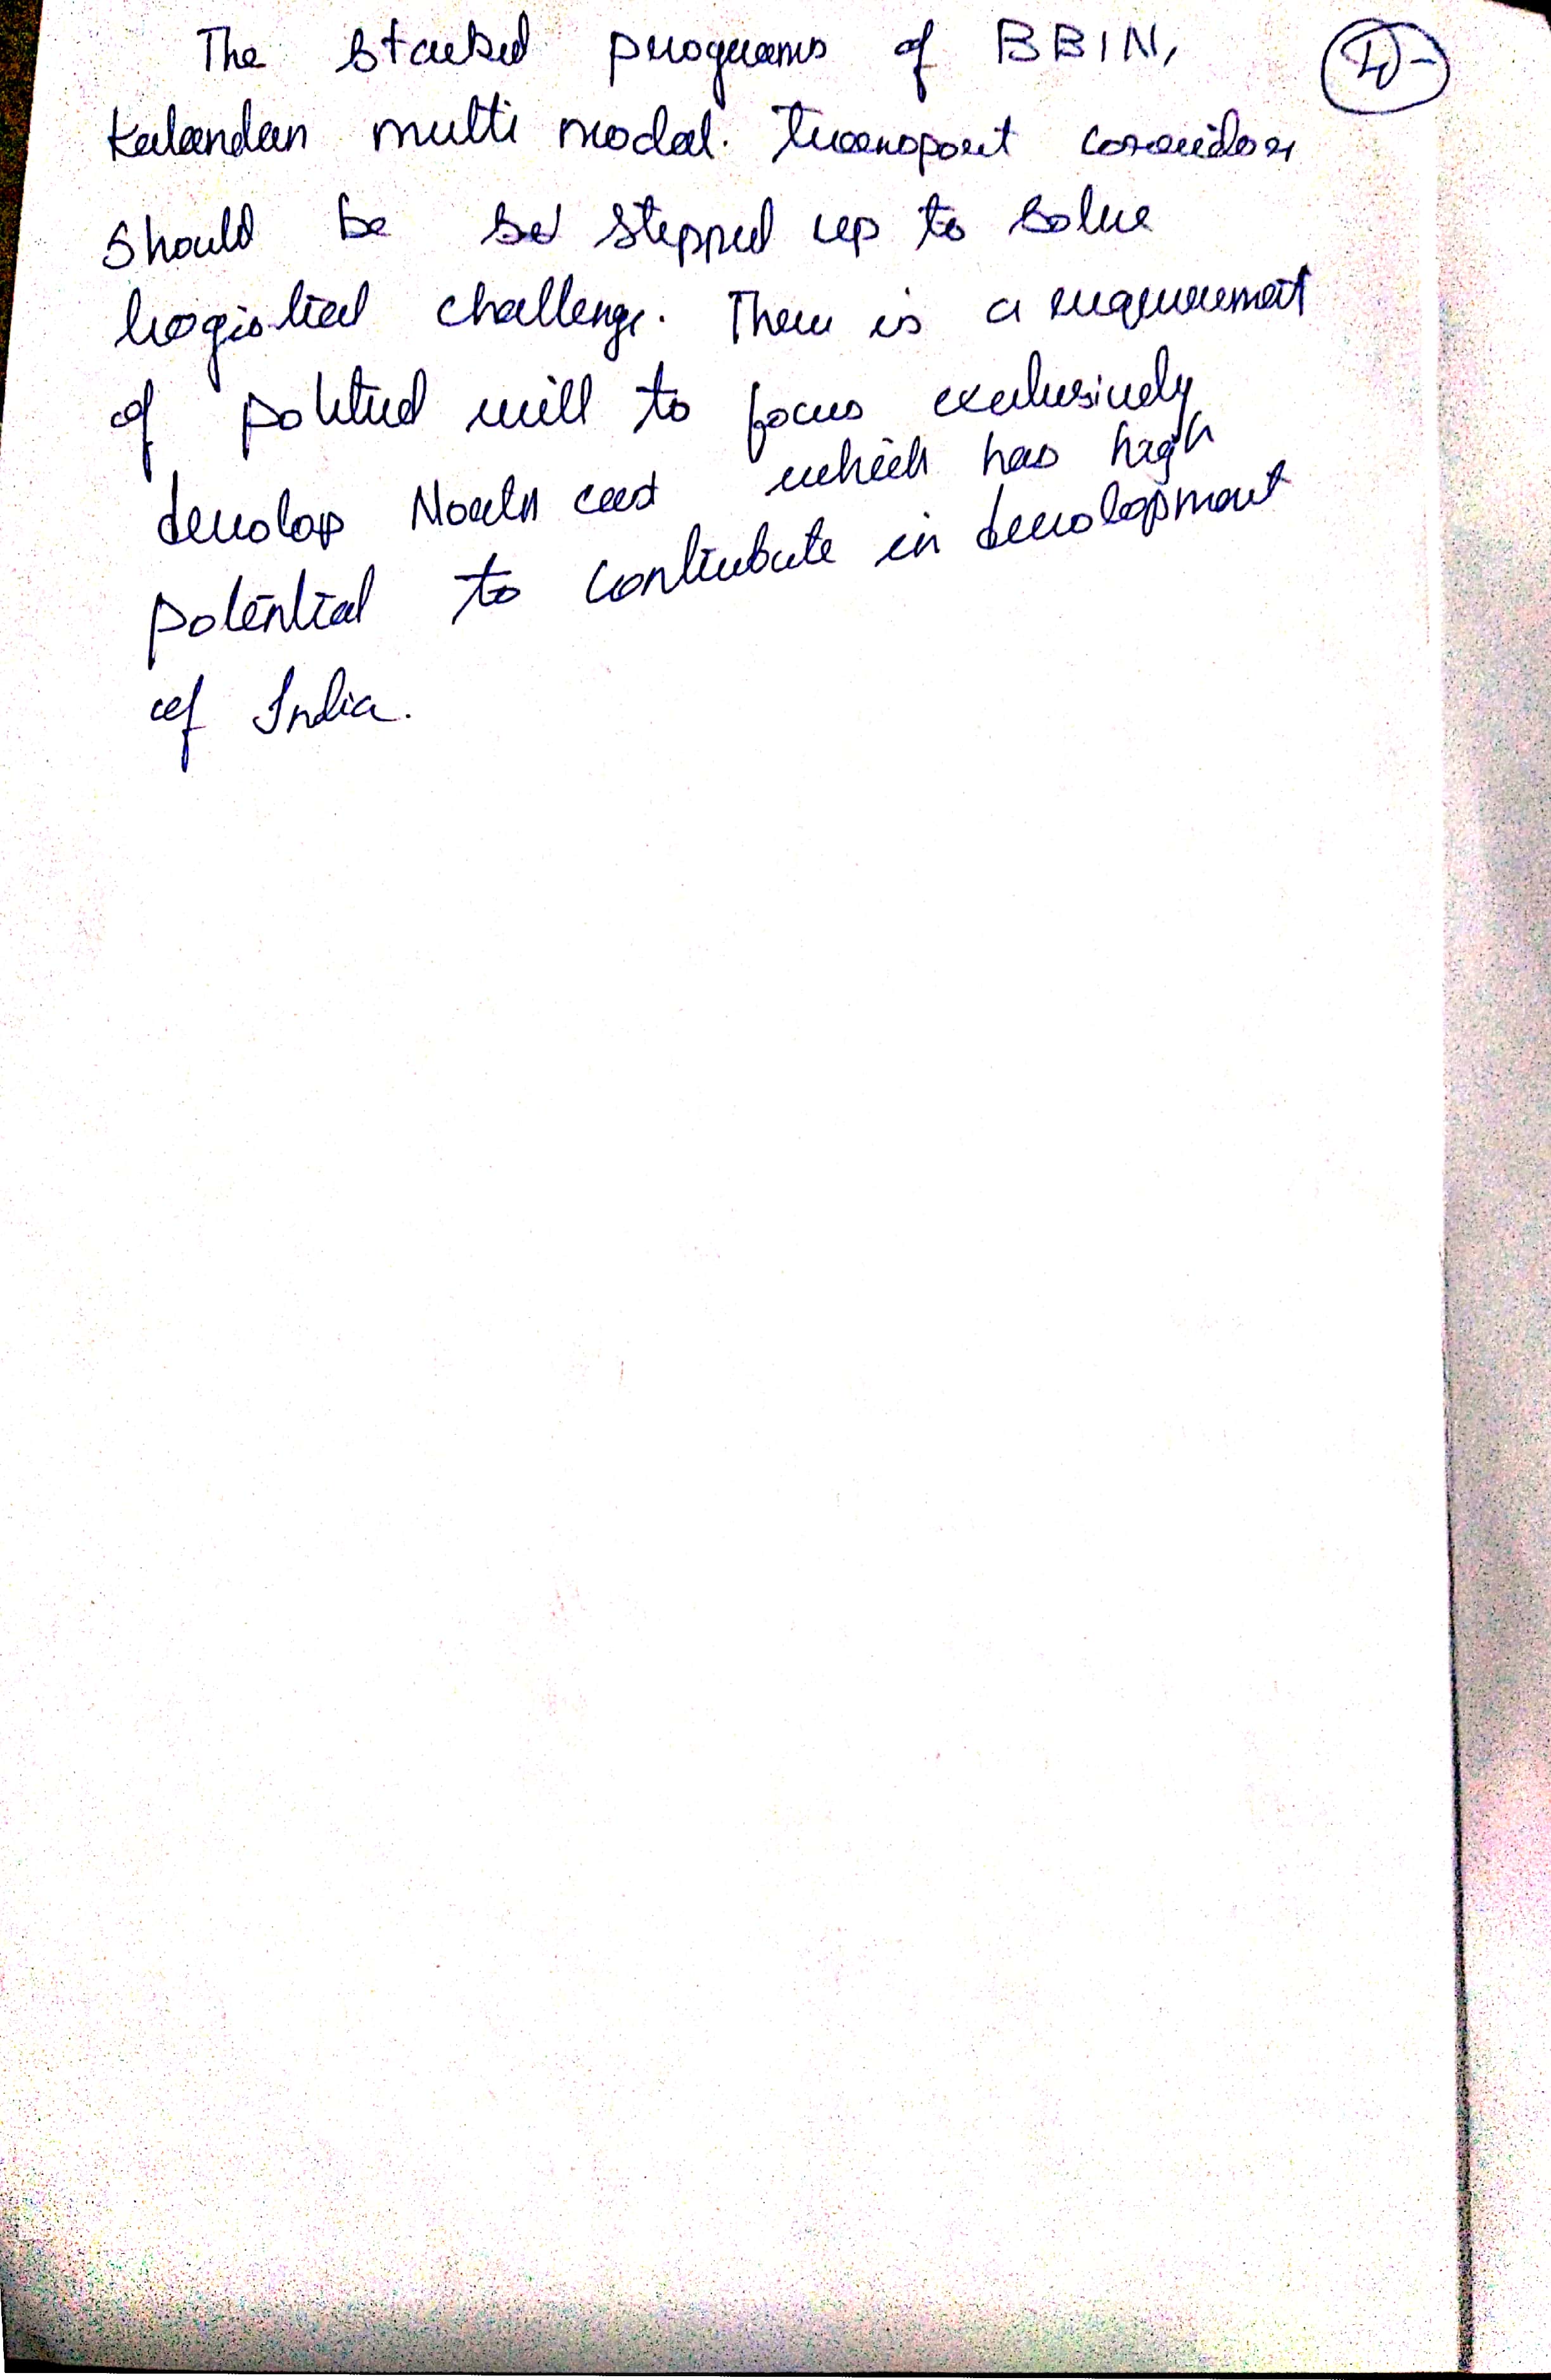 The started programs of BBIN,
Kalandan multi modal. transport corridor
should be stepped up to solve
logistical challenge. There is a requirement
of political will to focus exclusively
develop North east which has high
potential to contribute in development
of India.